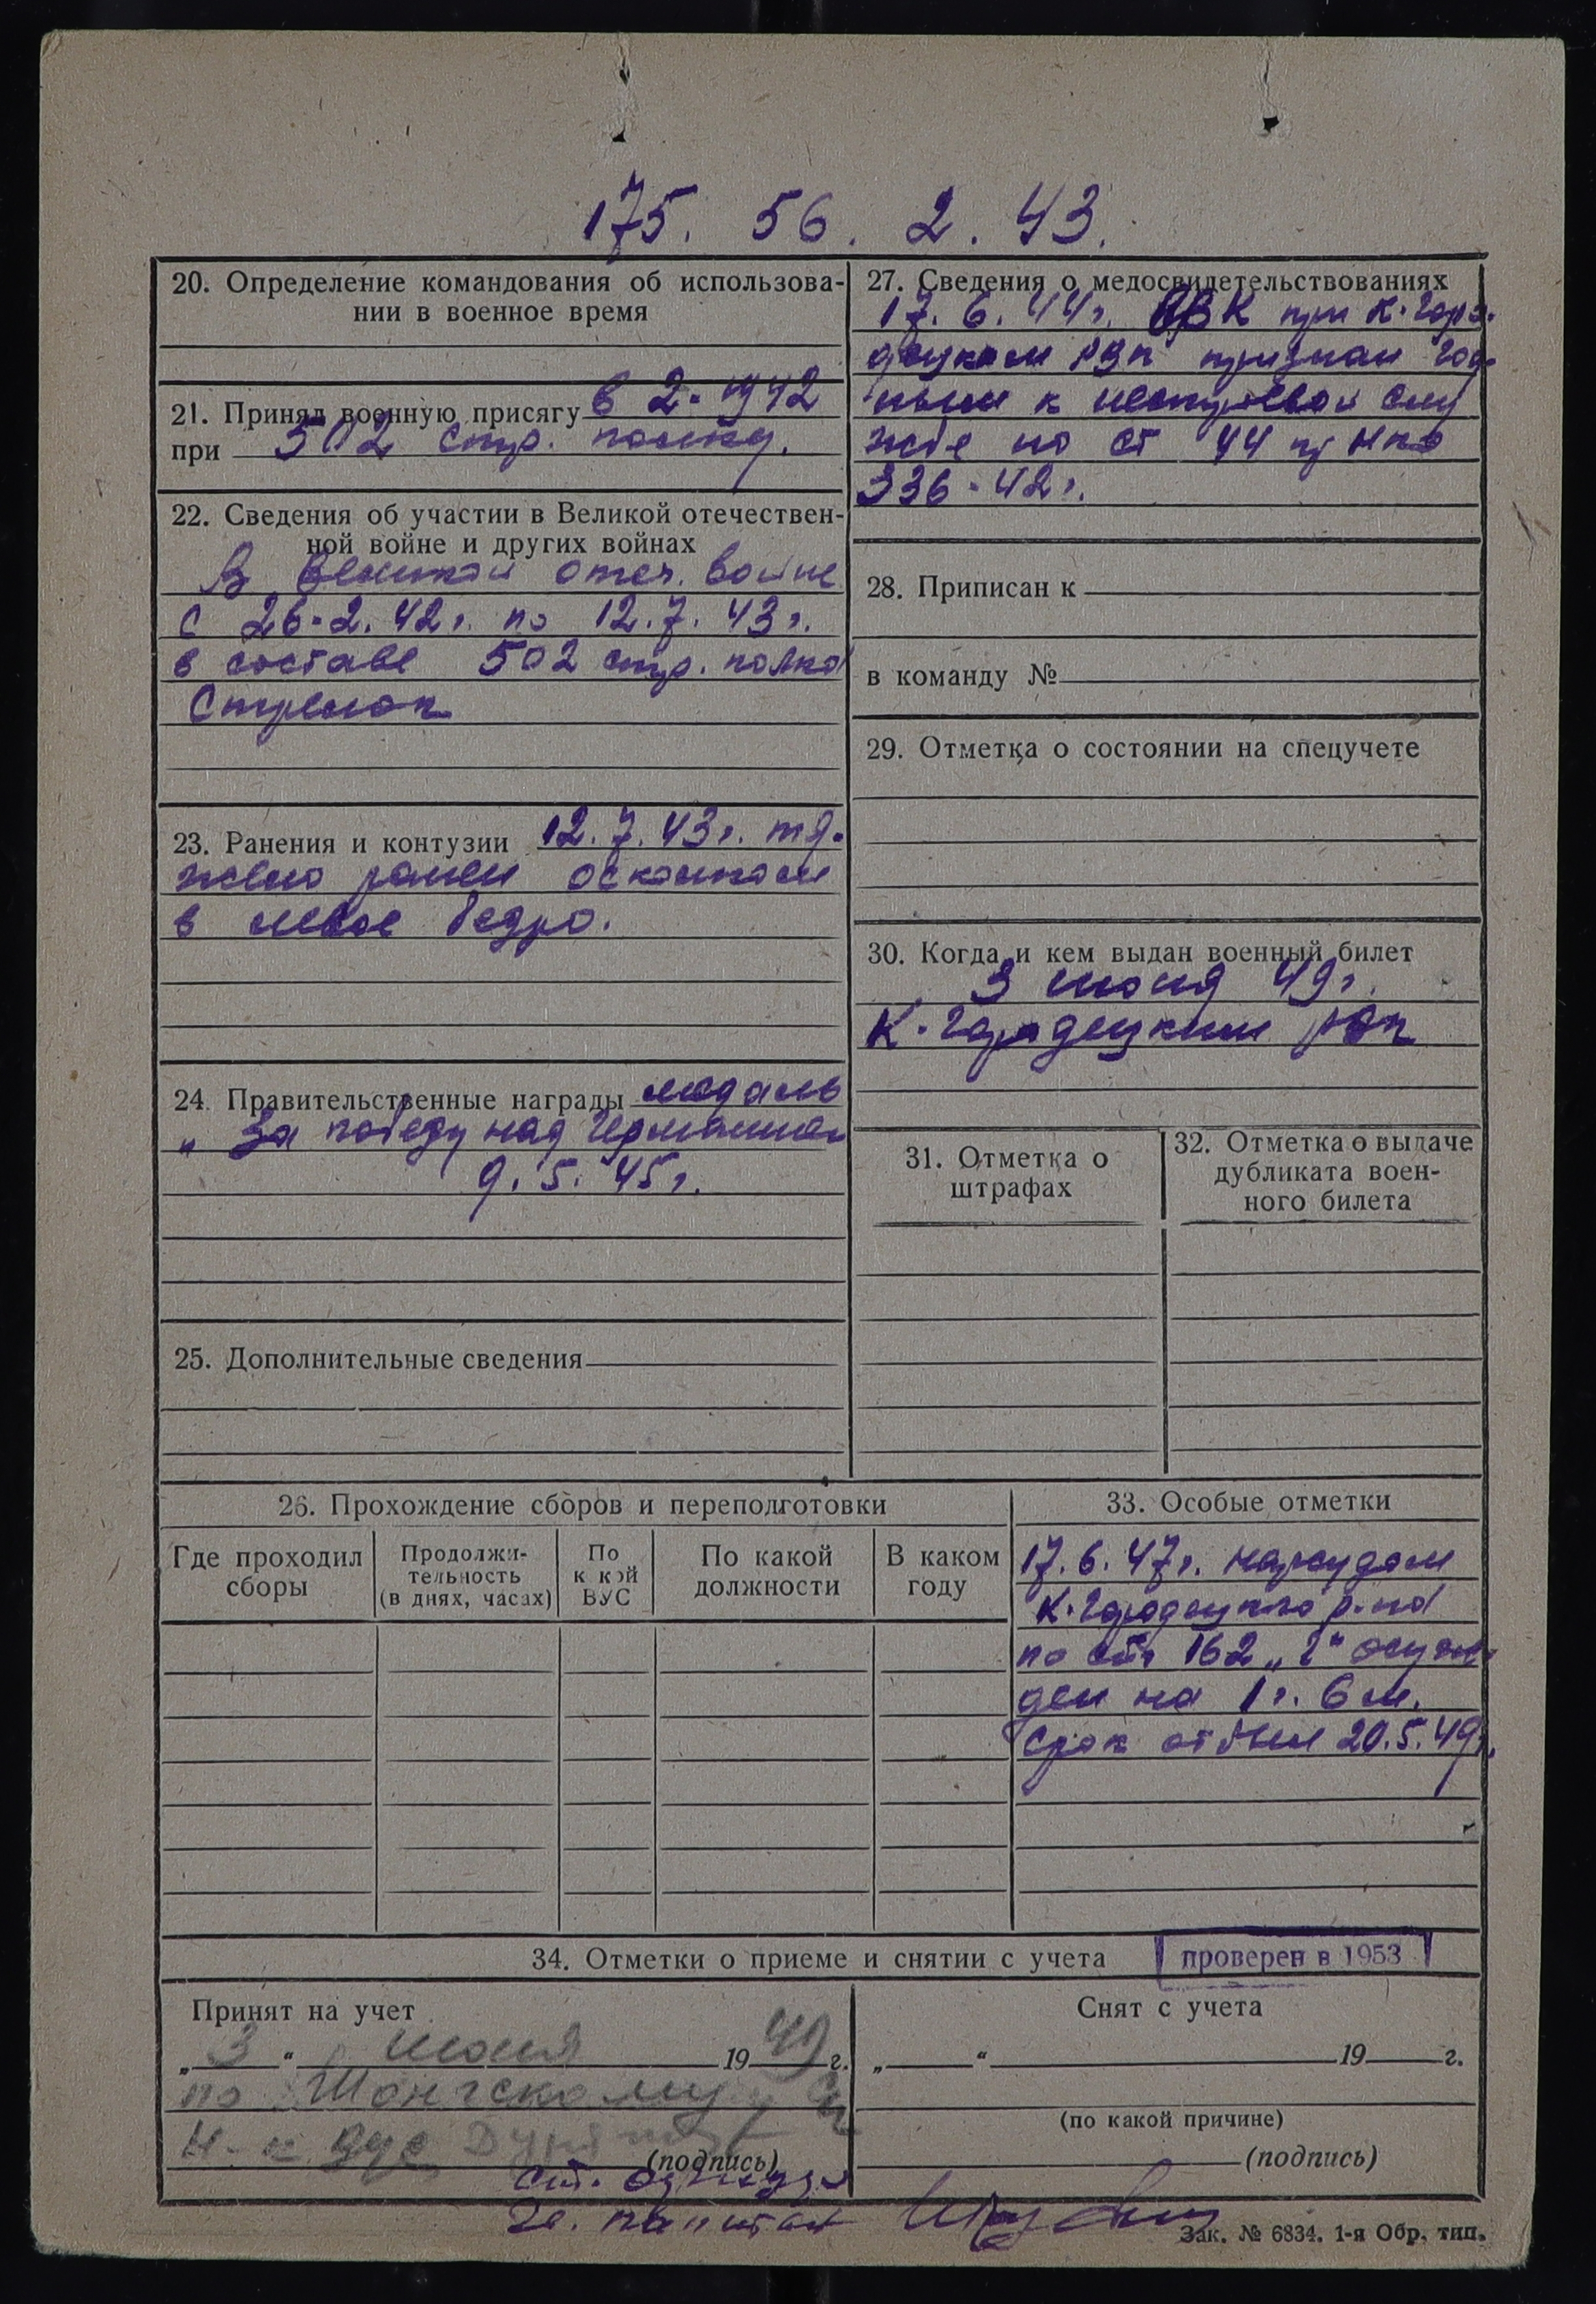 175. 56. 2. 43.
20. Определение командования об использова-
нии в военное время
21. Принял военную присягу в 2-1942
при 502 стр. полку.
22. Сведения об участии в Великой отечествен-
ной войне и других войнах
В Великой отеч. войне
с 26-2. 42г. по 12.7.43г.
в составе 502 стр. полка
Стрелок
23. Ранения и контузии 12.7.43г. тя-
жело ранен осколком
в левое бедро.
24. Правительственные награды медаль
„За победу над Германией
9.5.45г.
25. Дополнительные сведения
27. Сведения о медосвидетельствованиях
17.6.44г. ВВК при К-Горо-
децком РВК признан год-
ным к нестроевой слу
жбе по ст 44 пр НКО
336-42г.
28. Приписан к
в команду №
29. Отметка о состоянии на спецучете
30. Когда и кем выдан военный билет
3 июня 49г.
К-Городецким рвк
31. Отметка о
штрафах
32. Отметка о выдаче
дубликата воен-
ного билета
26. Прохождение сборов и переподготовки
Где проходил
сборы
Продолжи-
тельность
(в днях, часах)
По
к кой
ВУС
По какой
должности
В каком
году
33. Особые отметки
17.6.47г. нарсудом
К-Городецкого р-на
по ст. 162 „г" осуж-
ден на 1г. 6м.
срок отбыл 20.5.49г.
34. Отметки о приеме и снятии с учета
проверен в 1953
Принят на учет
„3" июня 1949г.
по Шонгскому
Н-к ВУС
(подпись)
Снят с учета
„ " 19 г.
(по какой причине)
(подпись)
Ст.
капитан
Зак. № 6834. 1-я Обр. тип.